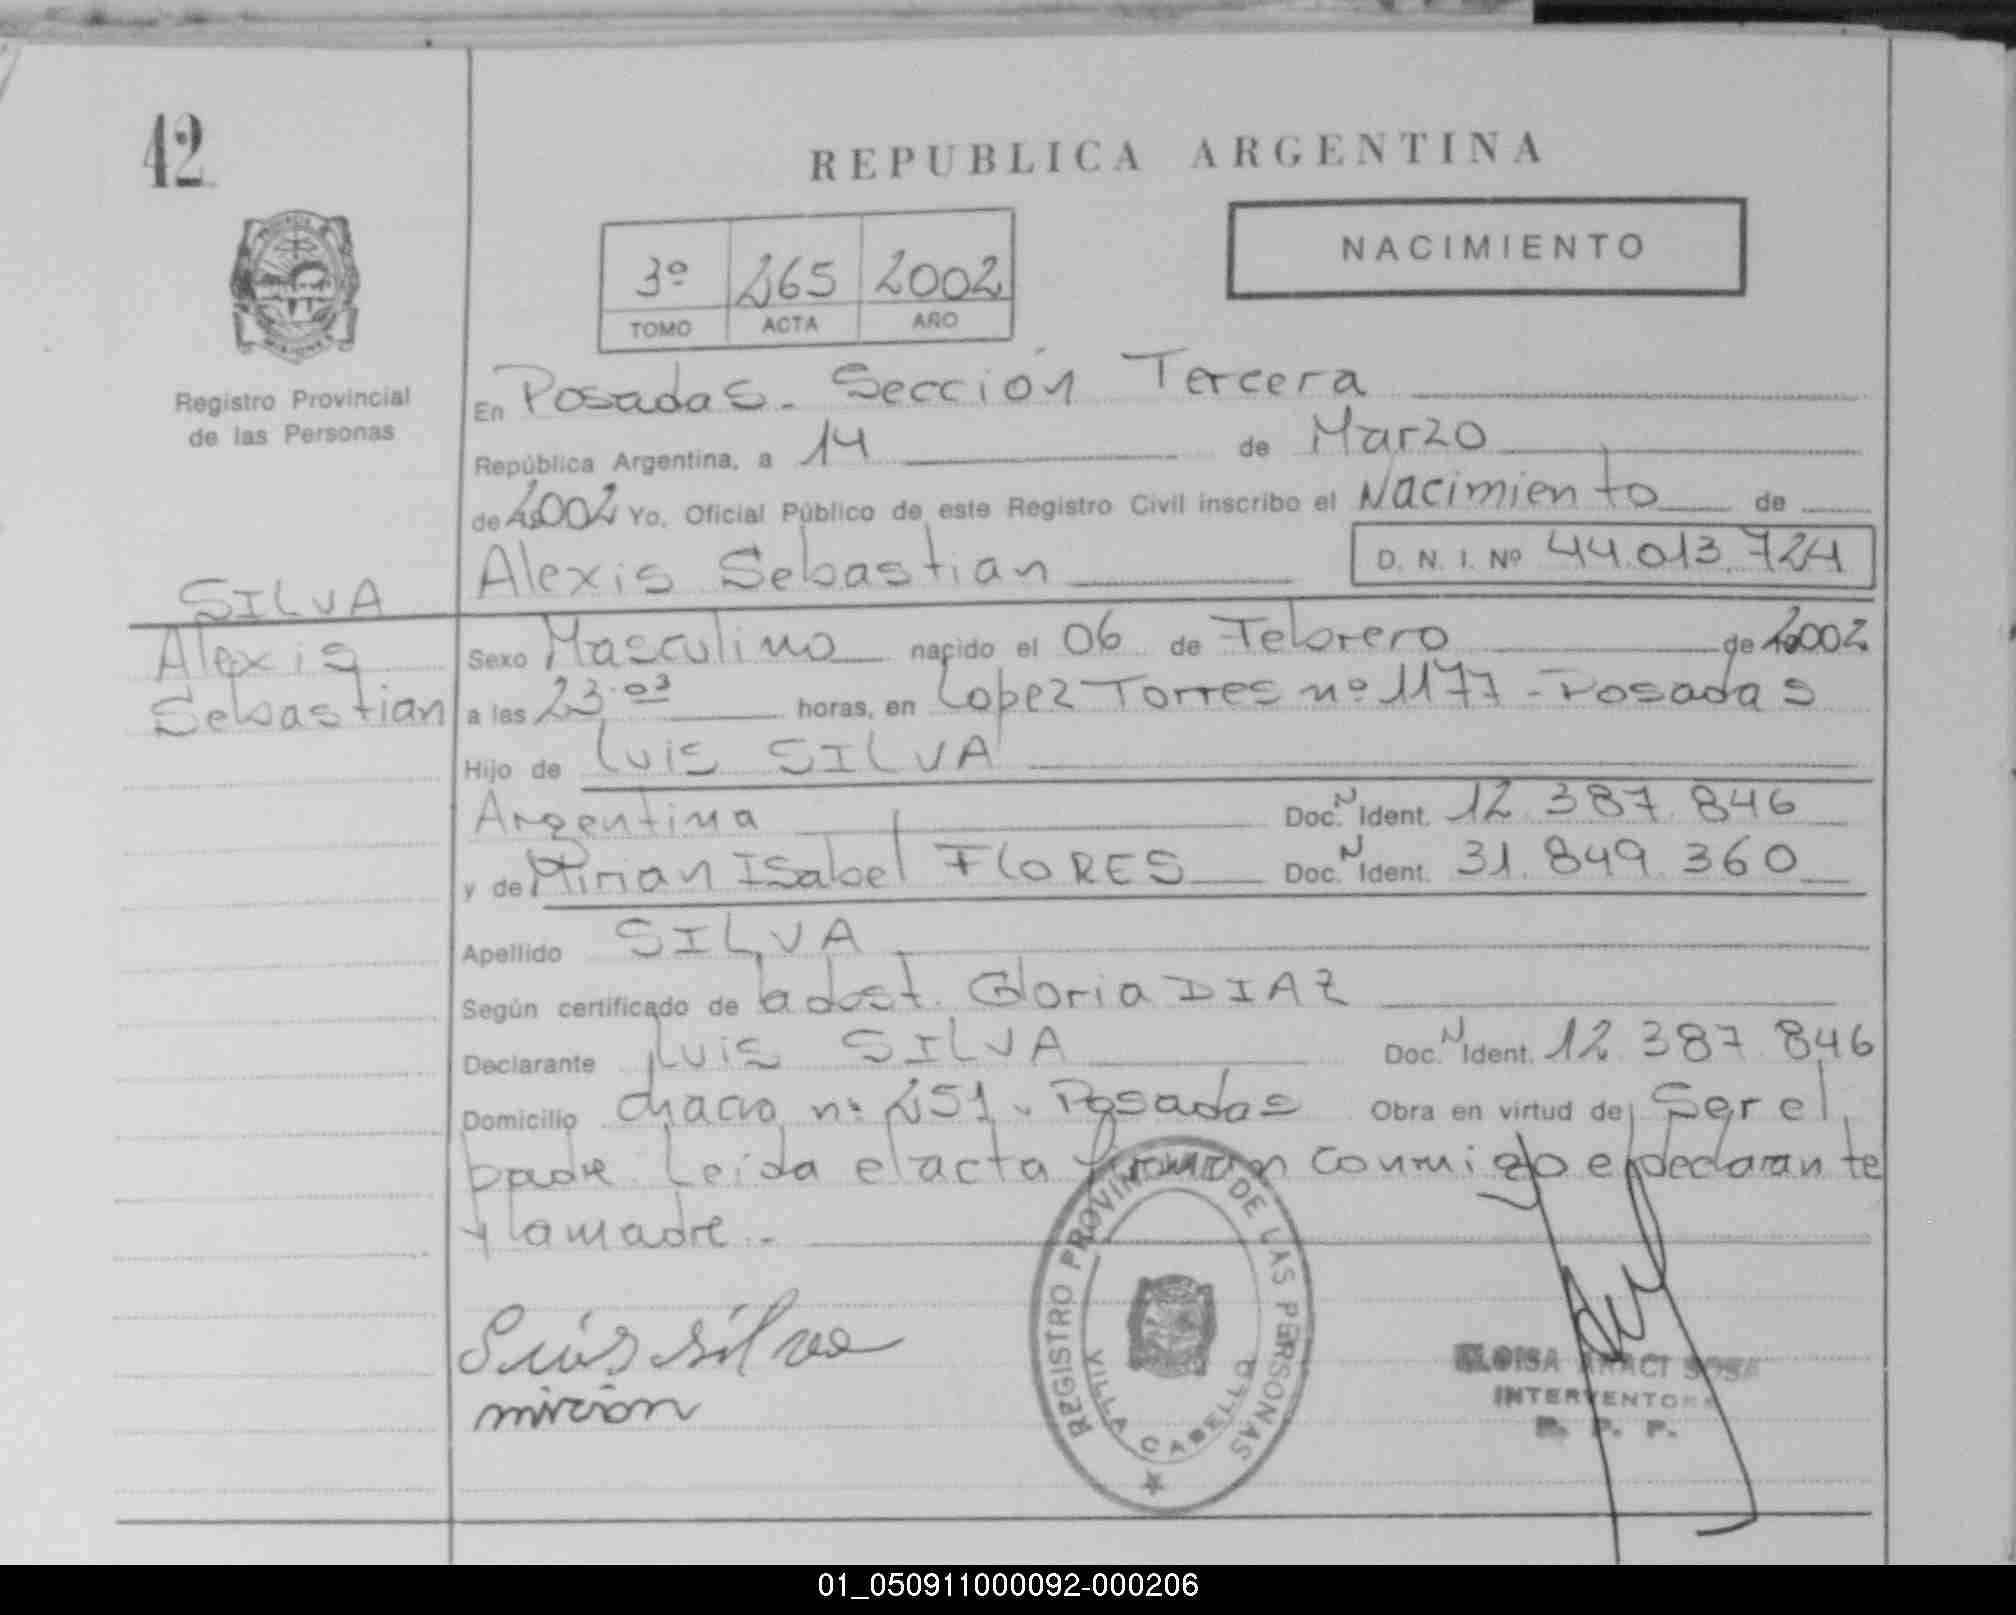 42
REPUBLICA ARGENTINA
NACIMIENTO
3º 265 2002
TOMO ACTA AÑO
Registro Provincial
de las Personas
En Posadas. Sección Tercera
República Argentina, a 14 de Marzo
de 2002 Yo, Oficial Público de este Registro Civil inscribo el Nacimiento de
Alexis Sebastian D. N. I. Nº 44.013.724
SILVA
Alexis
Sebastian
Sexo Masculino nacido el 06 de Febrero de 2002
a las 23.03 horas, en Lopez Torres nº 1177 - Posadas
Hijo de Luis SILVA
Argentina Doc. N Ident. 12.387.846
y de Mirian ISabel FLORES Doc. N Ident. 31.849.360
Apellido SILVA
Según certificado de la obst. Gloria DIAZ
Declarante Luis SILVA Doc. N Ident. 12.387.846
Domicilio chacra nº 251. Posadas Obra en virtud de Ser el
padre. Leída el acta firman conmigo el declarante
y la madre.-
Luis silva
mirian
REGISTRO PROVINCIAL DE LAS PERSONAS
VILLA CABELLO
ELOISA ARACI SOSA
INTERVENTORA
R. P. P.
01_050911000092-000206